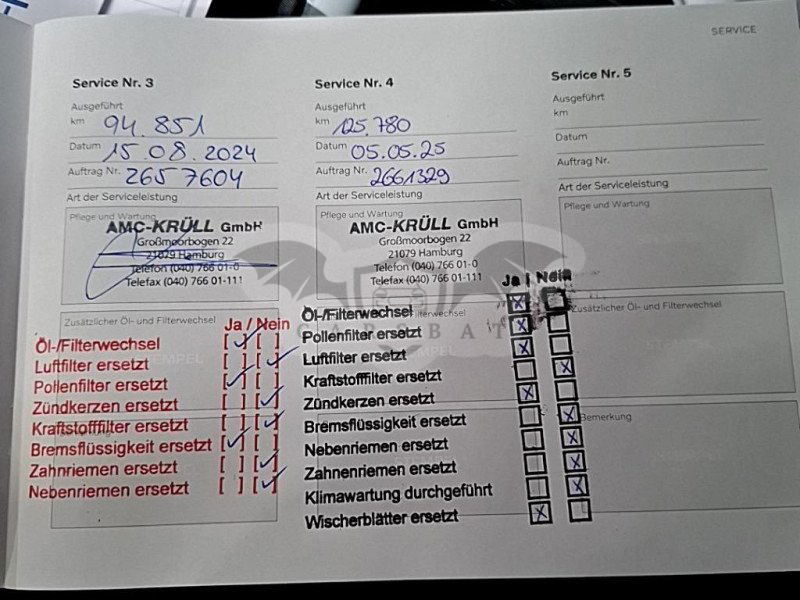 SERVICE
Service Nr. 3
Ausgeführt
km 94.851
Datum 15.08.2024
Auftrag Nr. 2657604
Art der Serviceleistung
Pflege und Wartung
AMC-KRÜLL GmbH
Großmoorbogen 22
21079 Hamburg
Telefon (040) 766 01-0
Telefax (040) 766 01-111
Zusätzlicher Öl- und Filterwechsel
Ja / Nein
Öl-/Filterwechsel [✓] [ ]
Luftfilter ersetzt [ ] [✓]
Pollenfilter ersetzt [✓] [ ]
Zündkerzen ersetzt [ ] [✓]
Kraftstofffilter ersetzt [ ] [✓]
Bremsflüssigkeit ersetzt [✓] [ ]
Zahnriemen ersetzt [ ] [✓]
Nebenriemen ersetzt [ ] [✓]
Service Nr. 4
Ausgeführt
km 125.780
Datum 05.05.25
Auftrag Nr. 2661329
Art der Serviceleistung
Pflege und Wartung
AMC-KRÜLL GmbH
Großmoorbogen 22
21079 Hamburg
Telefon (040) 766 01-0
Telefax (040) 766 01-111
Ja / Nein
Öl-/Filterwechsel
Pollenfilter ersetzt
Luftfilter ersetzt
Kraftstofffilter ersetzt
Zündkerzen ersetzt
Bremsflüssigkeit ersetzt
Nebenriemen ersetzt
Zahnenriemen ersetzt
Klimawartung durchgeführt
Wischerblätter ersetzt
Service Nr. 5
Ausgeführt
km
Datum
Auftrag Nr.
Art der Serviceleistung
Pflege und Wartung
Zusätzlicher Öl- und Filterwechsel
Bemerkung